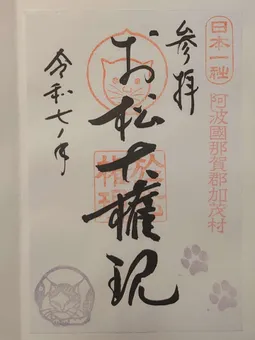 日本一社
阿波國那賀郡加茂村
参拝
お松大權現
令和七ノ年